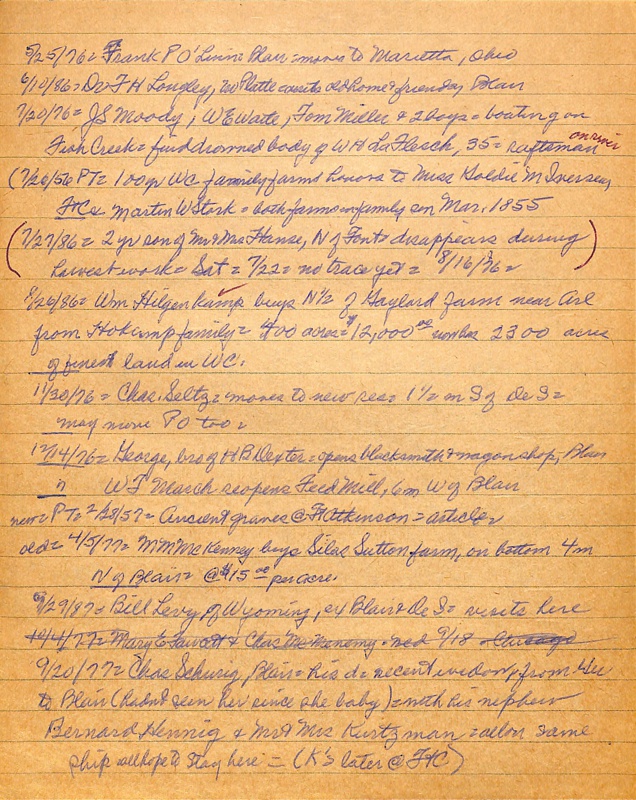 5/25/76 = Frank P O'Linn = Blair = moves to Marietta, Ohio
6/10/86 = Dr F H Longley, No Platte = visits old home & friends, Blair
7/20/76 = JS Moody, WE Waite, Tom Miller & 2 boys = boating on
Fish Creek = find drowned body of WH LaFlesch, 35 = raftsman on river
(7/26/56 PT = 100 yr WC family farms honors to Miss Goldie M Iversen,
FtC & Martin W Stork = both farms in family sin Mar. 1855
(7/27/86 = 2 yr son of Mr & Mrs Hanse, N of Font = disappears during
harvest work = Sat = 7/22 = no trace yet = 8/16/76 =)
8/26/86 = Wm Hilgenkamp buys N 1/2 of Gaylord farm near Arl
from Hokamp family = 400 acres = $12,000 00 number 2300 acres
of finest land in WC.
11/30/76 = Chas. Seltz = moves to new res = 1 1/2 m S of De S =
may move PO too =
12/14/76 = George, bro of HB Dexter = opens blacksmith & wagon shop, Blair
" WF March reopens Feed Mill, 6 m W of Blair
new = PT = 2/28/57 = Ancient graves @ Ft Atkinson = article
old = 4/5/77 = MM McKenney buys Silas Sutton farm, on bottom 4 m
N of Blair = @ $15 00 per acre.
9/29/87 = Bill Levy, of Wyoming, ex Blair & De S = visits here
10/4/77 = Mary E Fawcett & Chas McMenemy = wed 9/18 Chicago
9/20/77 = Chas Schurig, Blair = his d = recent widow, from
to Blair (hadn't seen her since she baby) = with his nephew
Bernard Hennig & Mr & Mrs Kurtzman = all on same
ship all hope to stay here = (K's later @ FtC)